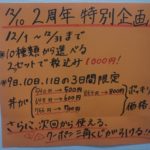 12/10 2周年特別企画
12/1〜12/31まで
*10種類から選べる
2セットで税込み1000円!
*9日.10日.11日の3日間限定
丼が
→500円
→600円
→700円
ポッキリ
価格
さらに、次回から使える、
クーポン三角くじが引ける!!